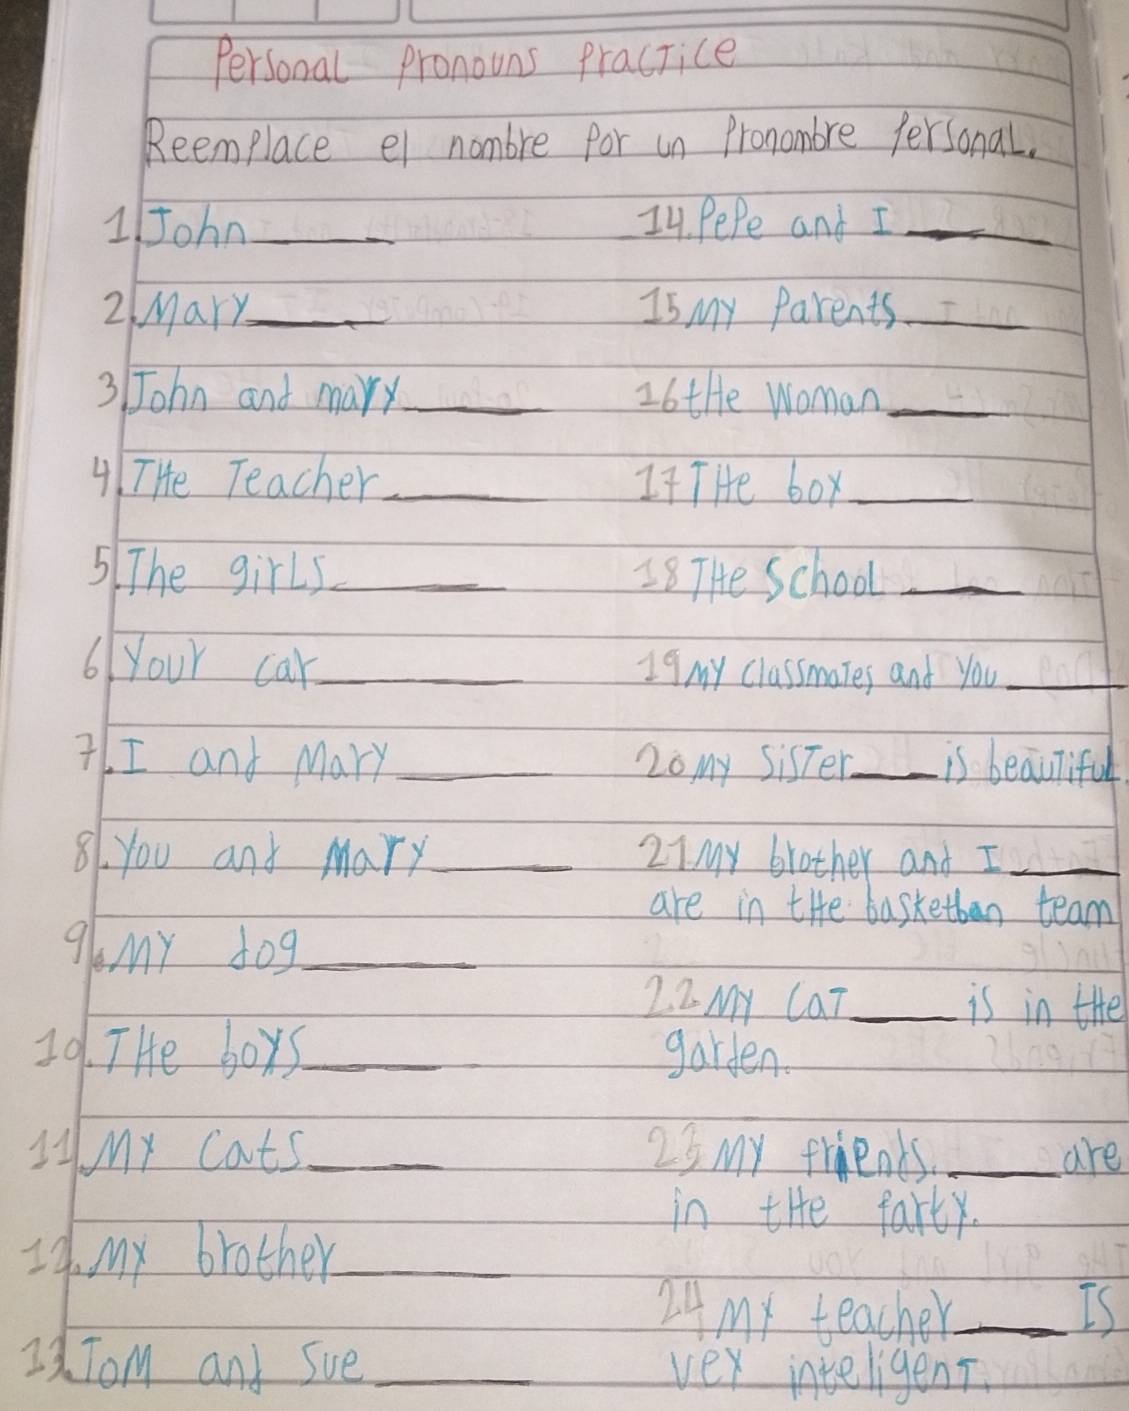 Personal Pronouns Practice
Reemplace el nombre por un Pronombre Personal.
1. John ______
2. Mary ______
3. John and mary ______
4. THe Teacher ______
5. The girls ______
6. Your car ______
7. I and Mary ______
8. You and Mary ______
9. MY dog ______
10. THe boys ______
11. MY cats ______
12. MY brother ______
13. TOM and Sue ______
14. Pepe and I ______
15 MY Parents ______
16 tHe Woman ______
17 THe box ______
18 THe School ______
19 MY classmates and You ______
20 MY sister ______ is beautiful
21 MY brother and I ______
are in tHe basketban team
22 MY CaT ______ is in tHe
garden.
23 MY friends. ______ are
in tHe party.
24 MY teacher ______ IS
vey inteligenT.